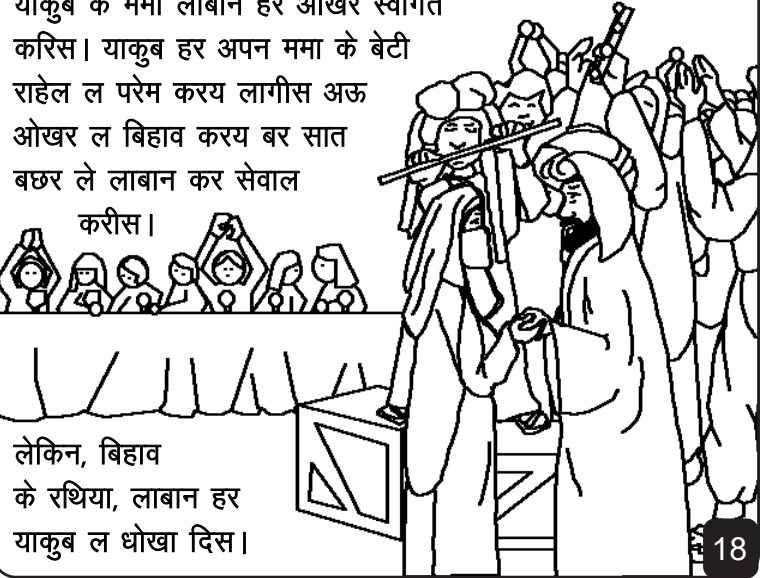 याकुब के ममा लाबान हर ओखर स्वागत
करिस। याकुब हर अपन ममा के बेटी
राहेल ल परेम करय लागीस अऊ
ओखर ल बिहाव करय बर सात
बछर ले लाबान कर सेवाल
करीस।
लेकिन, बिहाव
के रथिया, लाबान हर
याकुब ल धोखा दिस।
18